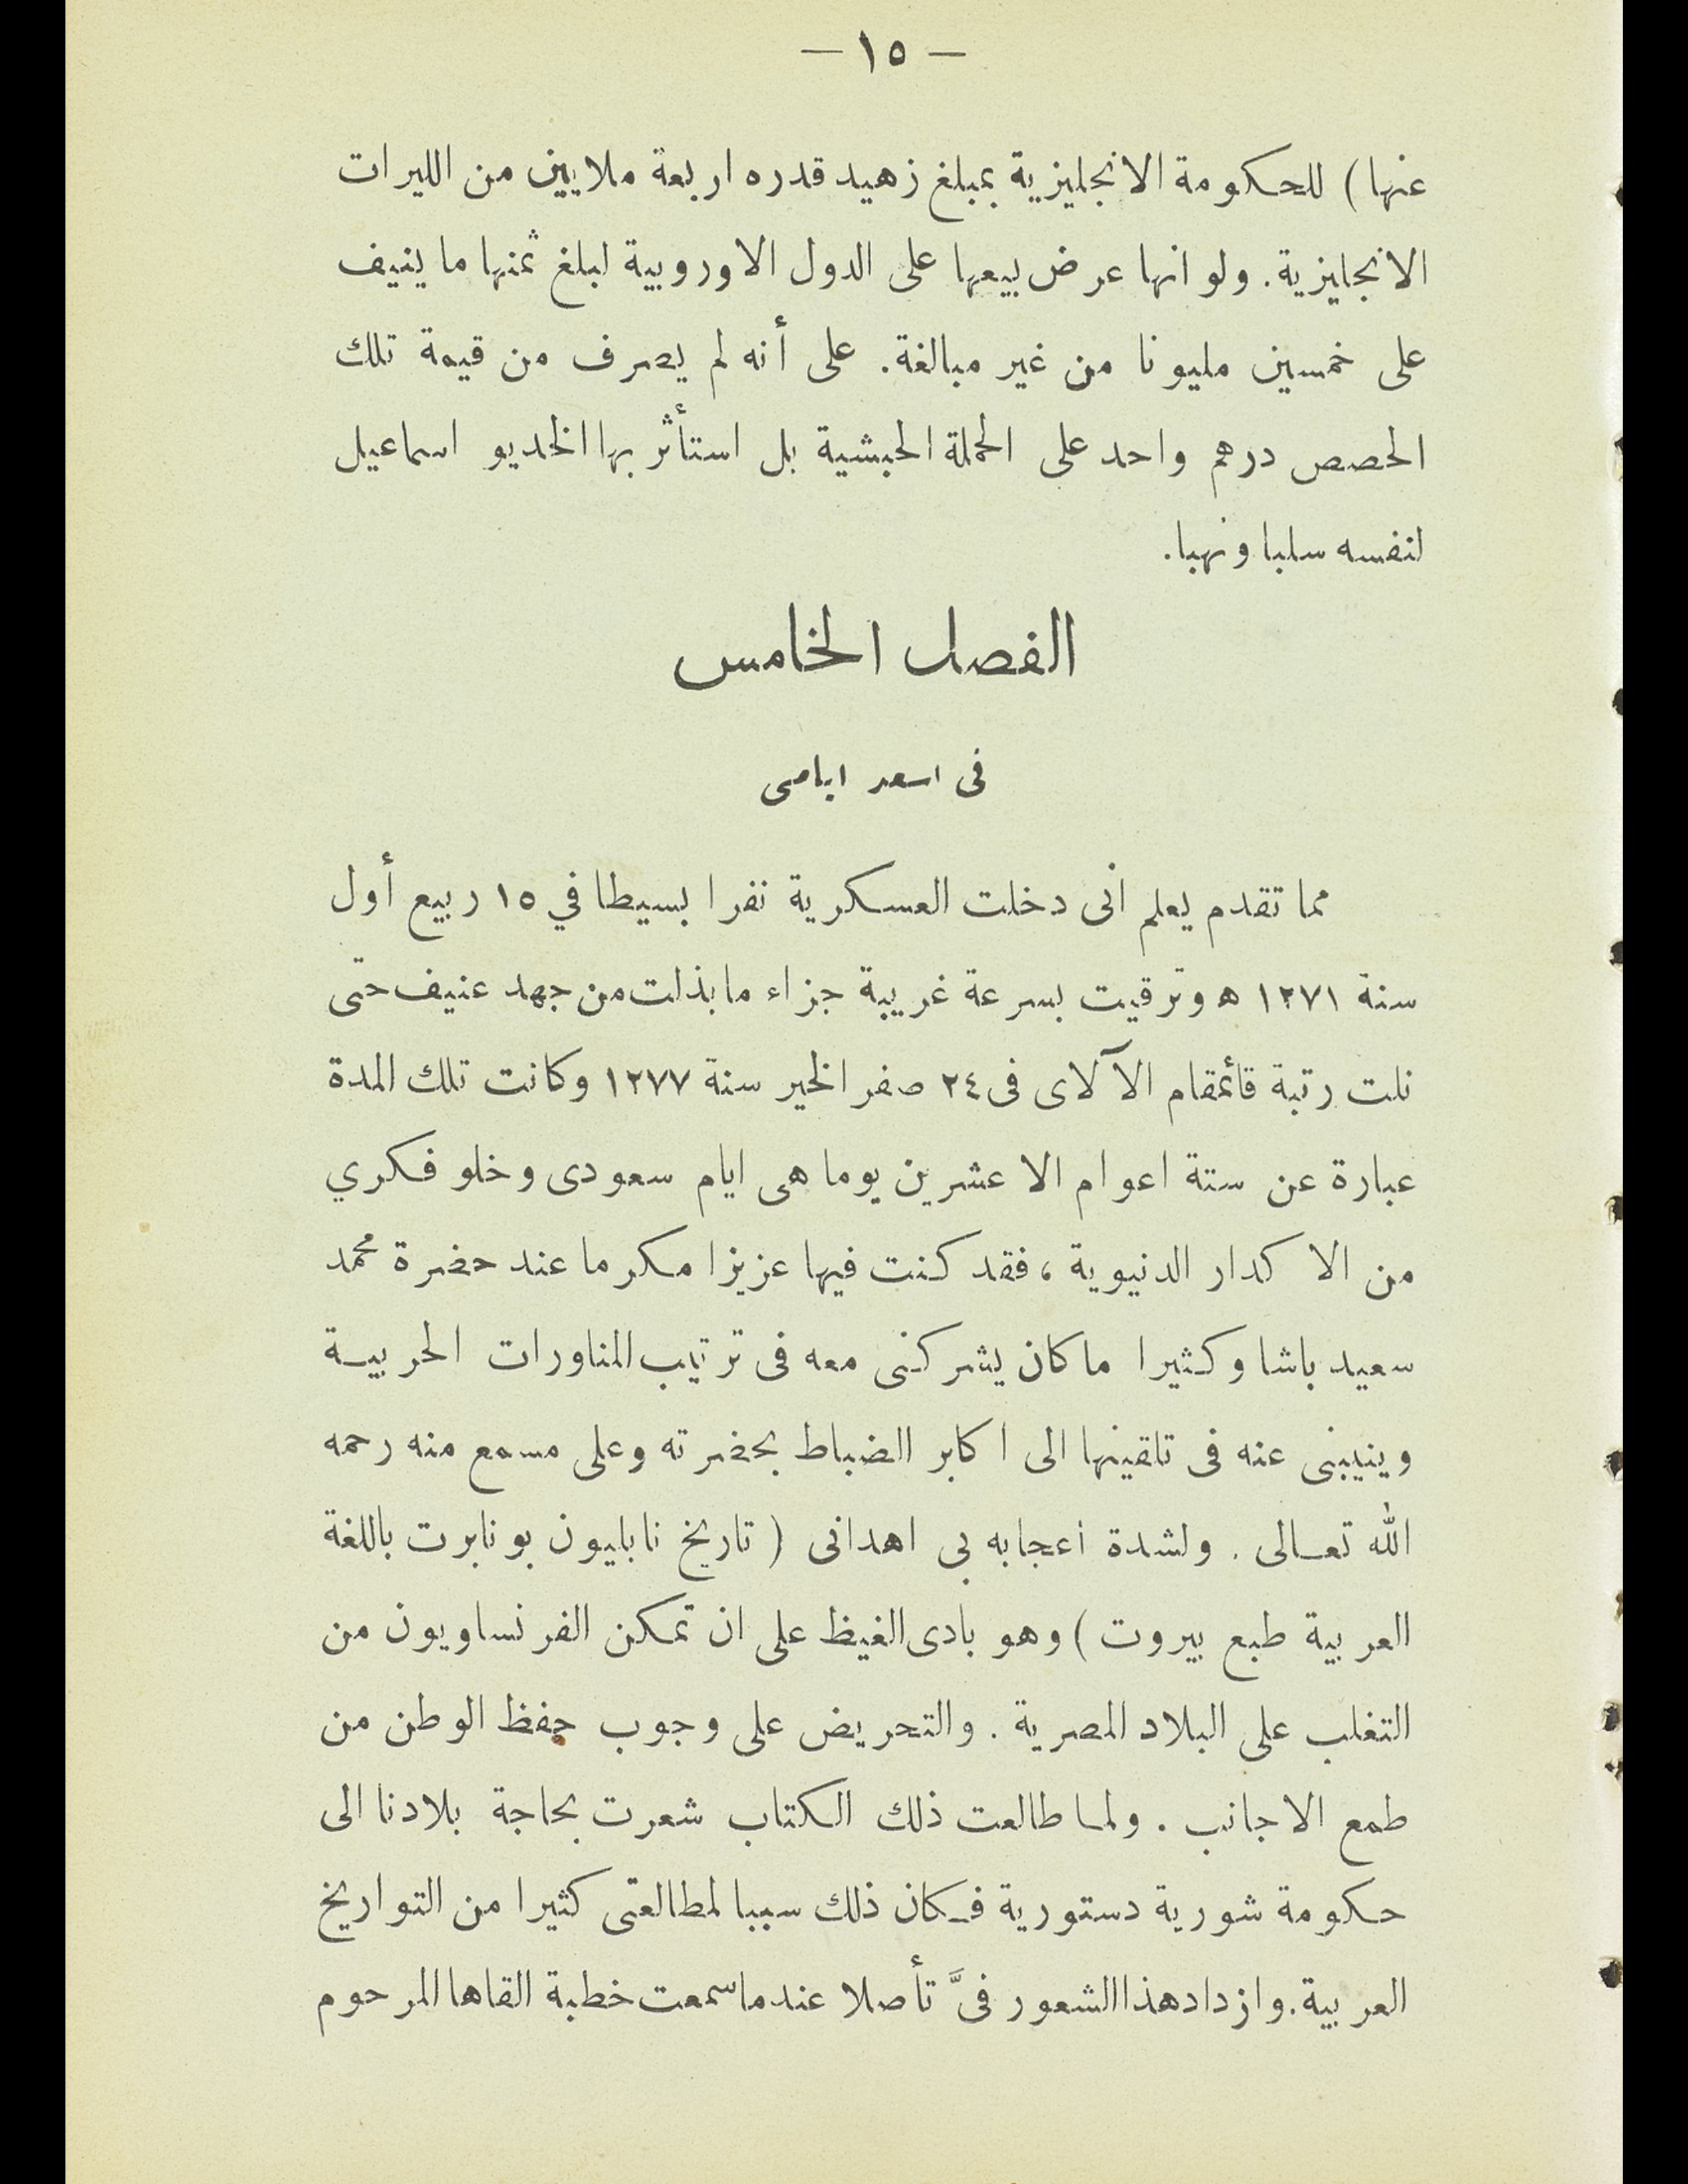 — ١٥ —
عنها) للحكومة الانجليزية بمبلغ زهيد قدره اربعة ملايين من الليرات
الانجليزية. ولو انها عرض بيعها على الدول الاوروبية لبلغ ثمنها ما ينيف
على خمسين مليونا من غير مبالغة. على أنه لم يصرف من قيمة تلك
الحصص درهم واحد على الحملة الحبشية بل استأثر بها الخديو اسماعيل
لنفسه سلبا ونهبا.
الفصل الخامس
فى اسعد ايامى
مما تقدم يعلم انى دخلت العسكرية نفرا بسيطا في ١٥ ربيع أول
سنة ١٢٧١ ه وترقيت بسرعة غريبة جزاء ما بذلت من جهد عنيف حتى
نلت رتبة قائمقام الآلاى فى ٢٤ صفر الخير سنة ١٢٧٧ وكانت تلك المدة
عبارة عن ستة اعوام الا عشرين يوما هى ايام سعودى وخلو فكري
من الاكدار الدنيوية ، فقد كنت فيها عزيزا مكرما عند حضرة محمد
سعيد باشا وكثيرا ما كان يشركنى معه فى ترتيب المناورات الحربية
وينيبنى عنه فى تلقينها الى اكابر الضباط بحضرته وعلى مسمع منه رحمه
الله تعالى . ولشدة اعجابه بى اهدانى ( تاريخ نابليون بونابرت باللغة
العربية طبع بيروت ) وهو بادى الغيظ على ان تمكن الفرنساويون من
التغلب على البلاد المصرية . والتحريض على وجوب حفظ الوطن من
طمع الاجانب . ولما طالعت ذلك الكتاب شعرت بحاجة بلادنا الى
حكومة شورية دستورية فكان ذلك سببا لمطالعتى كثيرا من التواريخ
العربية. وازداد هذا الشعور فىَّ تأصلا عندما سمعت خطبة القاها المرحوم